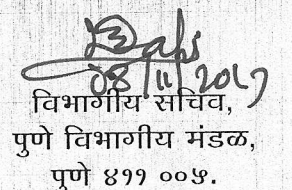 08/11/2017
विभागीय सचिव,
पुणे विभागीय मंडळ,
पुणे ४११ ००५.